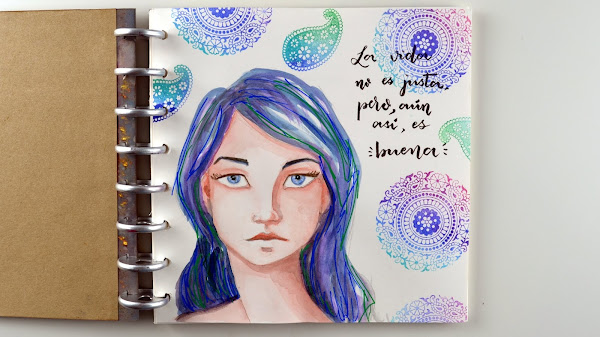 La vida
no es justa,
pero, aún
así, es
buena